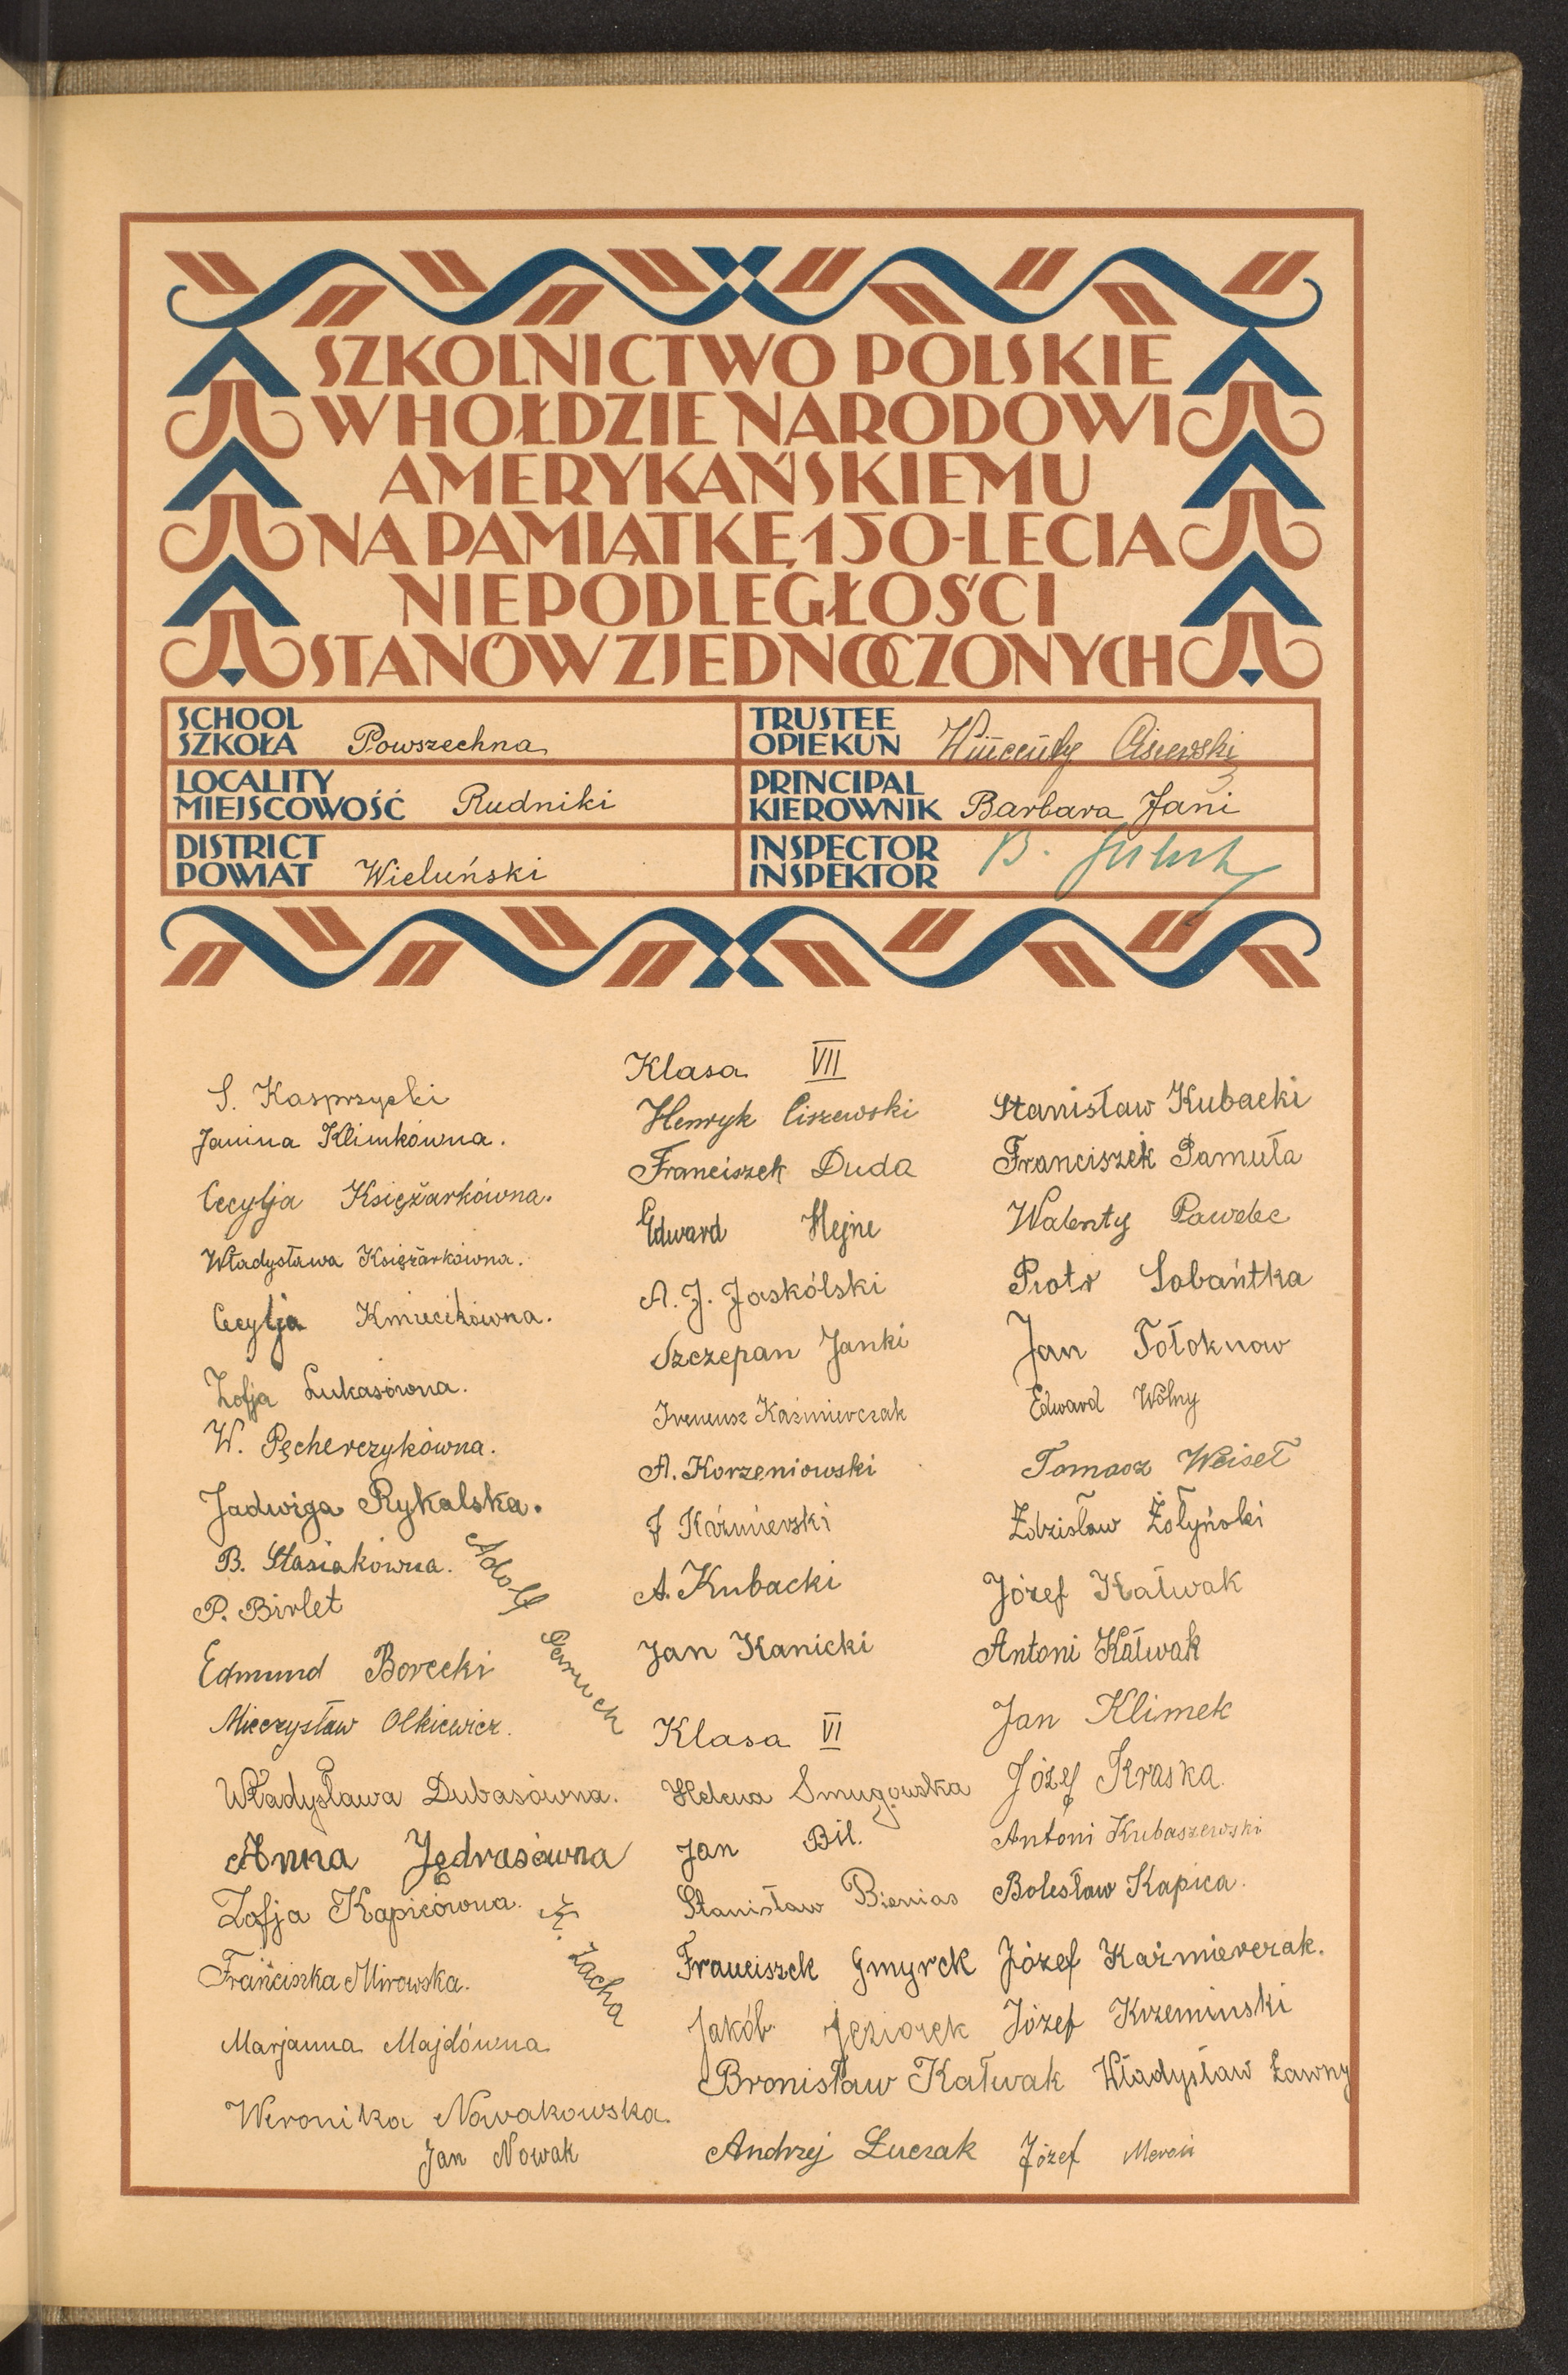 SZKOLNICTWO POLSKIE
W HOŁDZIE NARODOWI
AMERYKAŃSKIEMU
NA PAMIĄTKĘ 150-LECIA
NIEPODLEGŁOŚCI
STANÓW ZJEDNOCZONYCH
SCHOOL
SZKOŁA Powszechna
TRUSTEE
OPIEKUN Wincenty Ciszewski
LOCALITY
MIEJSCOWOŚĆ Rudniki
PRINCIPAL
KIEROWNIK Barbara Jani
DISTRICT
POWIAT Wieluński
INSPECTOR
INSPEKTOR B.
S. Kasprzycki
Janina Klimkówna.
Cecylja Księżarkówna.
Władysława Księżarkówna.
Cecylja Kmiecikówna.
Zofja Lukasówna.
W. Pęcherczykówna.
Jadwiga Rykalska.
B. Stasiakówna.
Adolf
P. Birlet
Edmund Borecki
Mieczysław Olkiewicz.
Władysława Dubasówna.
Anna Jędrasówna
Zofja Kapicówna.
Zacha
Franciszka Mirowska.
Marjanna Majdówna
Weronika Nowakowska.
Jan Nowak
Klasa VII
Henryk Ciszewski
Franciszek Duda
Edward Hejne
A. J. Jaskólski
Szczepan Janki
Ireneusz Kaźmierczak
A. Korzeniowski
J Kaźmierski
A. Kubacki
Jan Kanicki
Klasa VI
Helena Smugowska
Jan Bil.
Stanisław Bienias
Franciszek Gmyrek
Jakób Jeziorek
Bronisław Kałwak
Andrzej Łuczak
Stanisław Kubacki
Franciszek Pamuła
Walenty Pawelec
Piotr Sobańtka
Jan Tołoknow
Edward Wolny
Tomasz Weiseł
Zdzisław Żołyński
Józef Kałwak
Antoni Kałwak
Jan Klimek
Józef Kraska.
Antoni Kubaszewski
Bolesław Kapica.
Józef Kaźmierczak.
Józef Krzemiński
Władysław Ławny
Józef